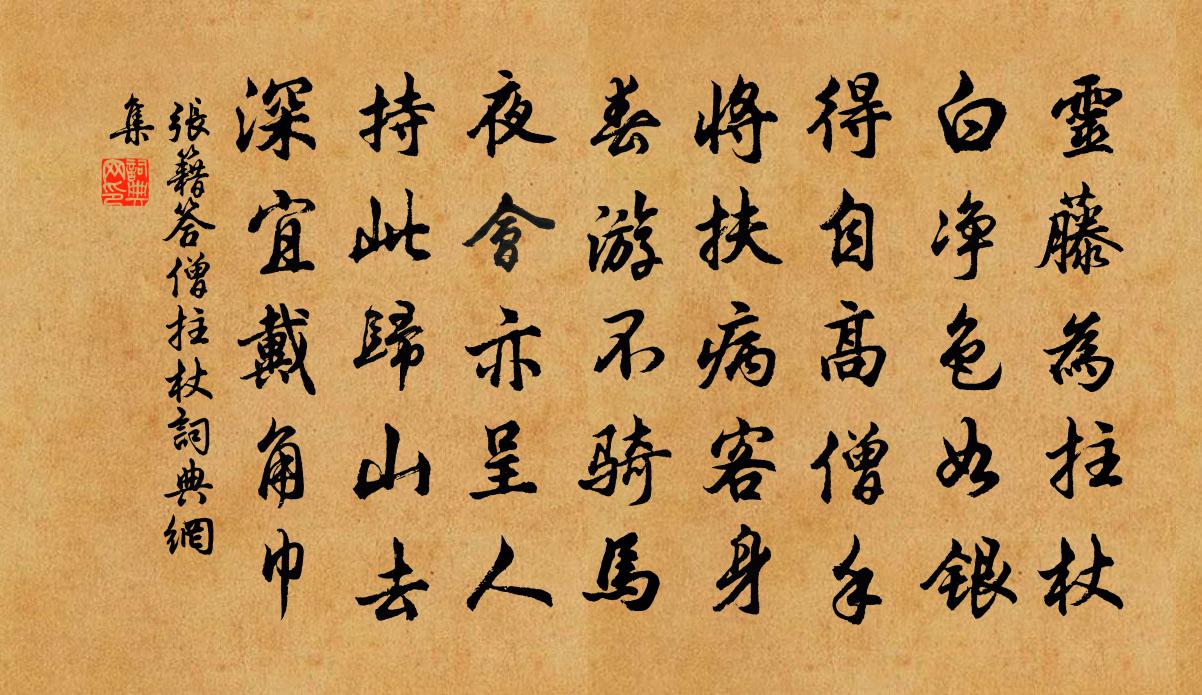 靈藤為拄杖
白净色如銀
得自高僧手
將扶病客身
春游不騎馬
夜會亦呈人
持此歸山去
深宜戴角巾
張籍答僧拄杖詞典網
集
詞典網印